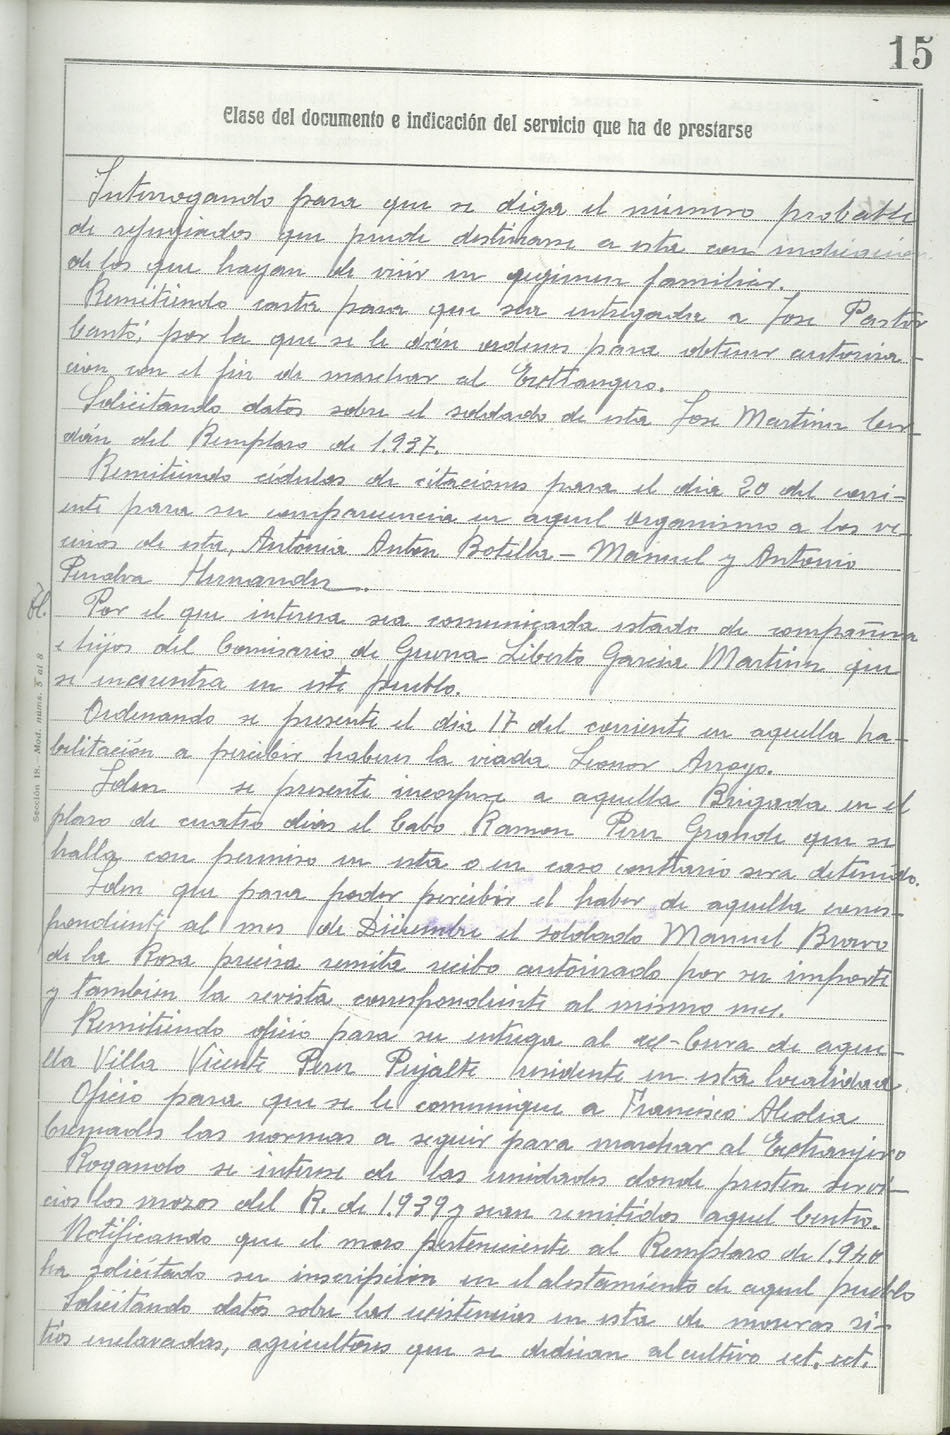 15
Clase del documento e indicación del servicio que ha de prestarse
Interrogando para que se diga el número probable
de refugiados que puede destinarse a esta con indicación
de los que hayan de vivir en regimen familiar.
Remitiendo carta para que sea entregada a Jose Pastor
Cantó, por la que se le dán ordenes para obtener autoriza-
cion con el fin de marchar al Extrangero.
Solicitando datos sobre el soldado de esta Jose Martinez Cer-
dán del Remplazo de 1.937.
Remitiendo cédulas de citaciones para el dia 20 del corri-
ente para su comparecencia en aquel organismo a los ve-
cinos de esta, Antonia Anton Botella - Manuel y Antonio
Penalva Hernandez.
Por el que interesa sea comunicada estado de compañera
e hijos del Comisario de Guerra Liberto Garcia Martinez que
se encuentra en este pueblo.
Ordenando se presente el dia 17 del corriente en aquella ha-
bilitación a percibir haberes la viuda Leonor Arroyo.
Iden se presente incorpore a aquella Brigada en el
plazo de cuatro dias el Cabo Ramon Perez Grande que se
halla con permiso en esta o en caso contrario sera detenido.
Iden que para poder percibir el haber de aquella corres-
pondiente al mes de Diciembre el soldado Manuel Bravo
de la Rosa precisa remita recibo autorizado por su importe
y también la revista correspondiente al mismo mes.
Remitiendo oficio para su entrega al ex-Cura de aque-
lla Villa Vicente Perez Pujalte residente en esta localidad.
Oficio para que se le comunique a Francisco Aledia
las normas a seguir para marchar al Extranjero
Rogando se interese de las unidades donde presten servi-
cios los mozos del R. de 1.939 y sean remitidos aquel Centro.
Notificando que el mozo perteneciente al Remplazo de 1.940
ha solicitado su inscripsión en el alistamiento de aquel pueblo
Solicitando datos sobre las existencias en esta de moreras si-
tios enclavadas, agricultores que se dedican al cultivo ect. ect.
Sección 18. - Mod. núms. 5 al 8